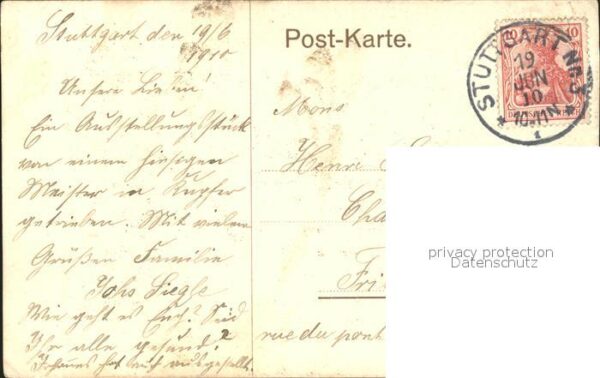 Stuttgart den 19/6
1910
Unsere Lieben!
Ein Ausstellungsstück
von einem hiesigen
Meister in Kupfer
getrieben. Mit vielen
Grüßen Familie
Johs Siegle
Wie geht es Euch? Seid
Ihr alle gesund?
Johannes hat auch ausgestellt.
Post-Karte.
10 10
STUTTGART Nr. 3
19
JUN
10
10-11N
1
Mons
Henre
Cha
Fri
rue du pont
privacy protection
Datenschutz